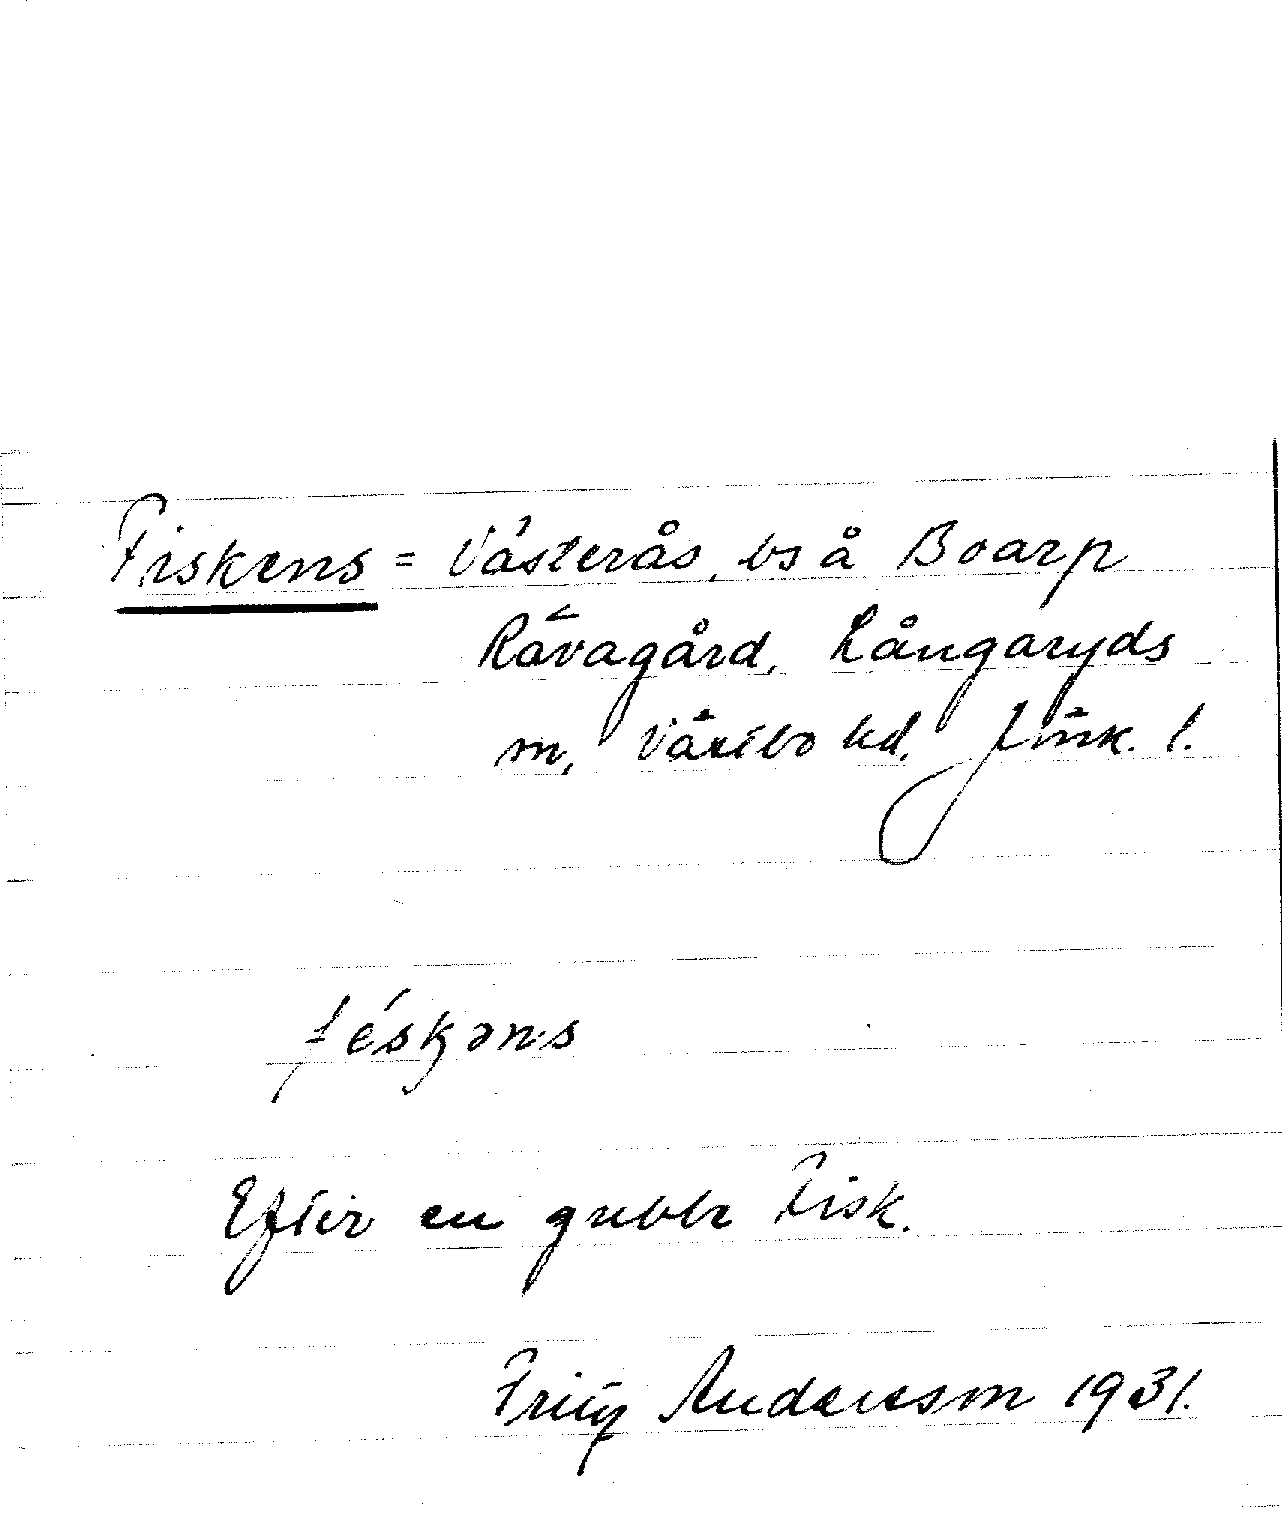 Fiskens = Västerås, bs å Boarp
Rävagård, Långaryds
sn, Västbo hd, Jönk. l.
féskəns
Efter en gubbe Fisk.
Fritz Andersson 1931.